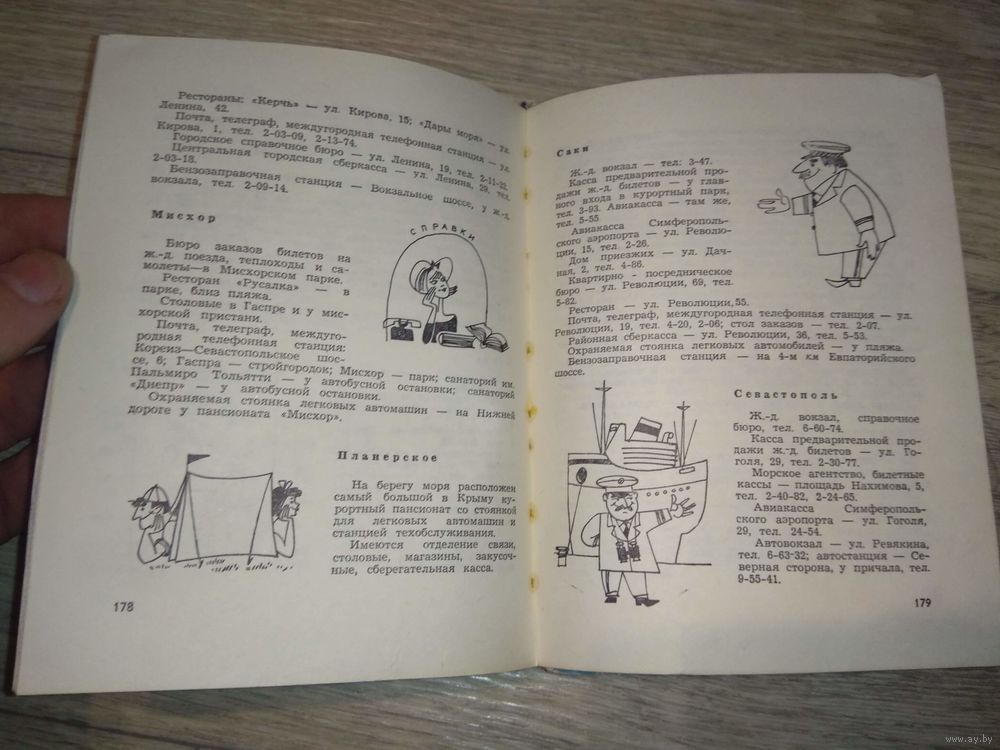 Рестораны: «Керчь» — ул. Кирова, 15; «Дары моря» — ул.
Ленина, 42.
Почта, телеграф, междугородная телефонная станция — ул.
Кирова, 1, тел. 2-03-09, 2-13-74.
Городское справочное бюро — ул. Ленина, 19, тел. 2-11-23.
Центральная городская сберкасса — ул. Ленина, 29, тел.
2-03-18.
Бензозаправочная станция — Вокзальное шоссе, у ж.-д.
вокзала, тел. 2-09-14.
Мисхор
СПРАВКИ
Бюро заказов билетов на
ж.-д. поезда, теплоходы и са-
молеты—в Мисхорском парке.
Ресторан «Русалка» — в
парке, близ пляжа.
Столовые в Гаспре и у мис-
хорской пристани.
Почта, телеграф, междуго-
родная телефонная станция:
Кореиз—Севастопольское шос-
се, 6; Гаспра — стройгородок; Мисхор — парк; санаторий им.
Пальмиро Тольятти — у автобусной остановки; санаторий
«Днепр» — у автобусной остановки.
Охраняемая стоянка легковых автомашин — на Нижней
дороге у пансионата «Мисхор».
Планерское
На берегу моря расположен
самый большой в Крыму ку-
рортный пансионат со стоянкой
для легковых автомашин и
станцией техобслуживания.
Имеются отделение связи,
столовые, магазины, закусоч-
ные, сберегательная касса.
178
Саки
Ж.-д. вокзал — тел: 3-47.
Касса предварительной про-
дажи ж.-д. билетов — у глав-
ного входа в курортный парк,
тел. 3-93. Авиакасса — там же,
тел. 5-55
Авиакасса Симферополь-
ского аэропорта — ул. Револю-
ции, 15, тел. 2-26.
Дом приезжих — ул. Дач-
ная, 2, тел. 4-86.
Квартирно - посредническое
бюро — ул. Революции, 69, тел.
5-82.
Ресторан — ул. Революции, 55.
Почта, телеграф, междугородная телефонная станция — ул.
Революции, 19, тел. 4-20, 2-06; стол заказов — тел. 2-07.
Районная сберкасса — ул. Революции, 36, тел. 5-53.
Охраняемая стоянка легковых автомобилей — у пляжа.
Бензозаправочная станция — на 4-м км Евпаторийского
шоссе.
Севастополь
Ж.-д. вокзал, справочное
бюро, тел. 6-60-74.
Касса предварительной про-
дажи ж.-д. билетов — ул. Го-
голя, 29, тел. 2-30-77.
Морское агентство, билетные
кассы — площадь Нахимова, 5,
тел. 2-40-82, 2-24-65.
Авиакасса Симферополь-
ского аэропорта — ул. Гоголя,
29, тел. 24-54.
Автовокзал — ул. Ревякина,
тел. 6-63-32; автостанция — Се-
верная сторона, у причала, тел.
9-55-41.
179
www.ay.by